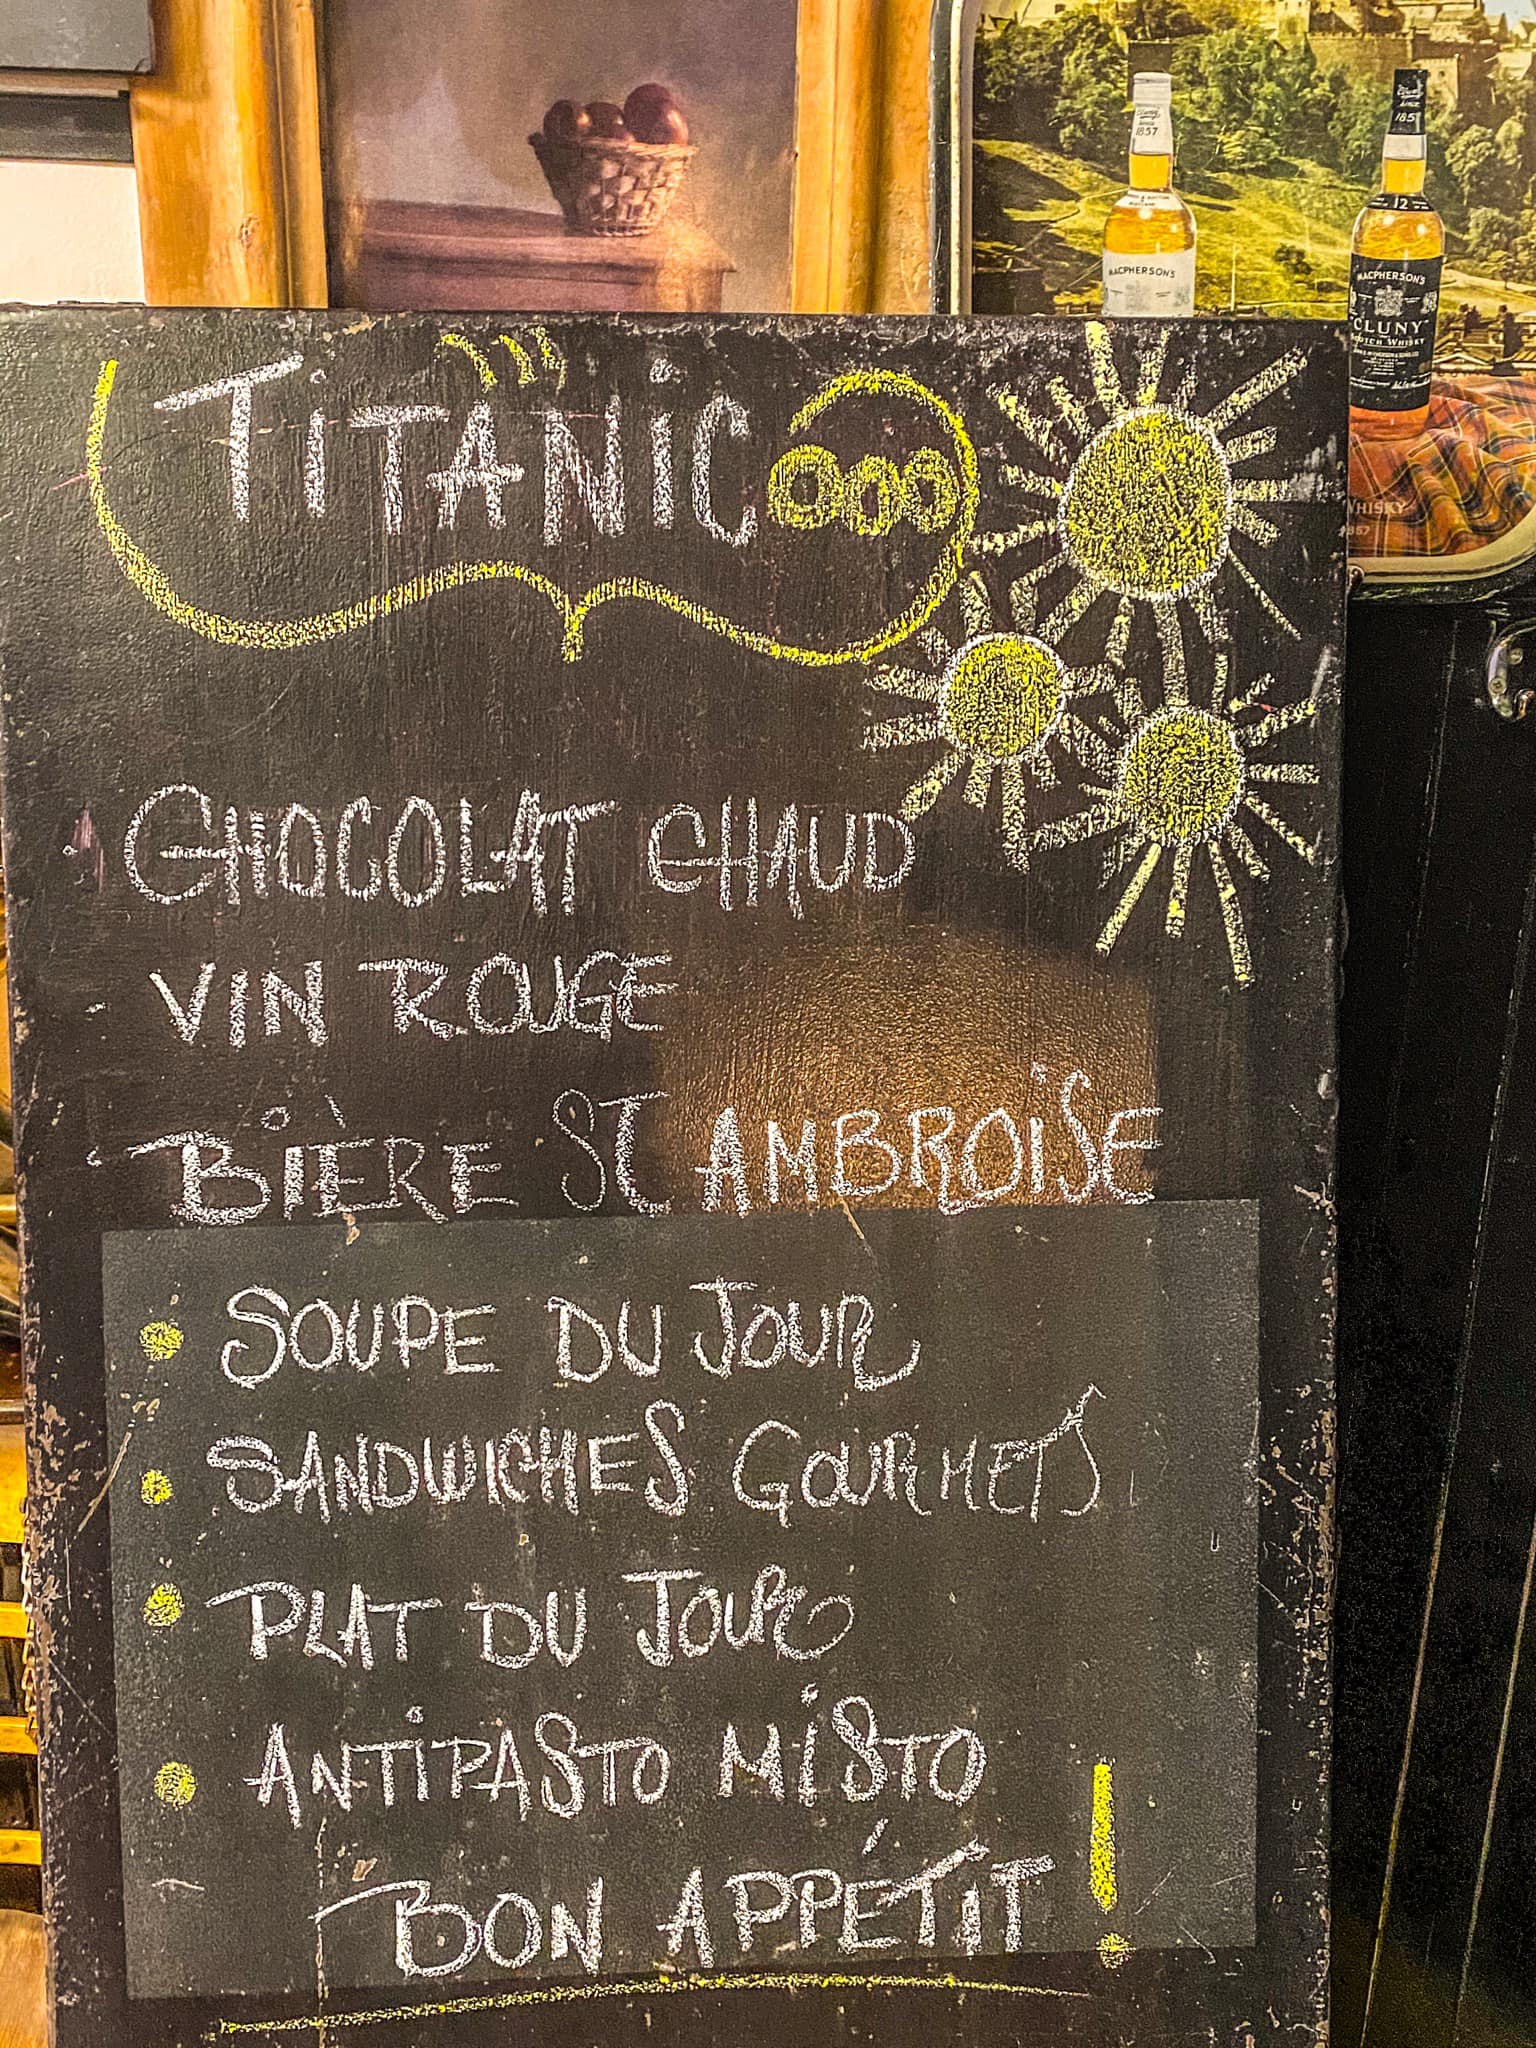 SINCE
1857
MACPHERSON'S
SINCE
185
12
MACPHERSON'S
CLUNY
SCOTCH WHISKY
WHISKY
TiTANiC
CHOCOLAT CHAUD
VIN ROUGE
BIÈRE ST AMBROiSE
SOUPE DU JOUR
SANDWICHES GOURMETS
PLAT DU JOUR
ANTiPASTO MiSTO
BON APPÉTiT !